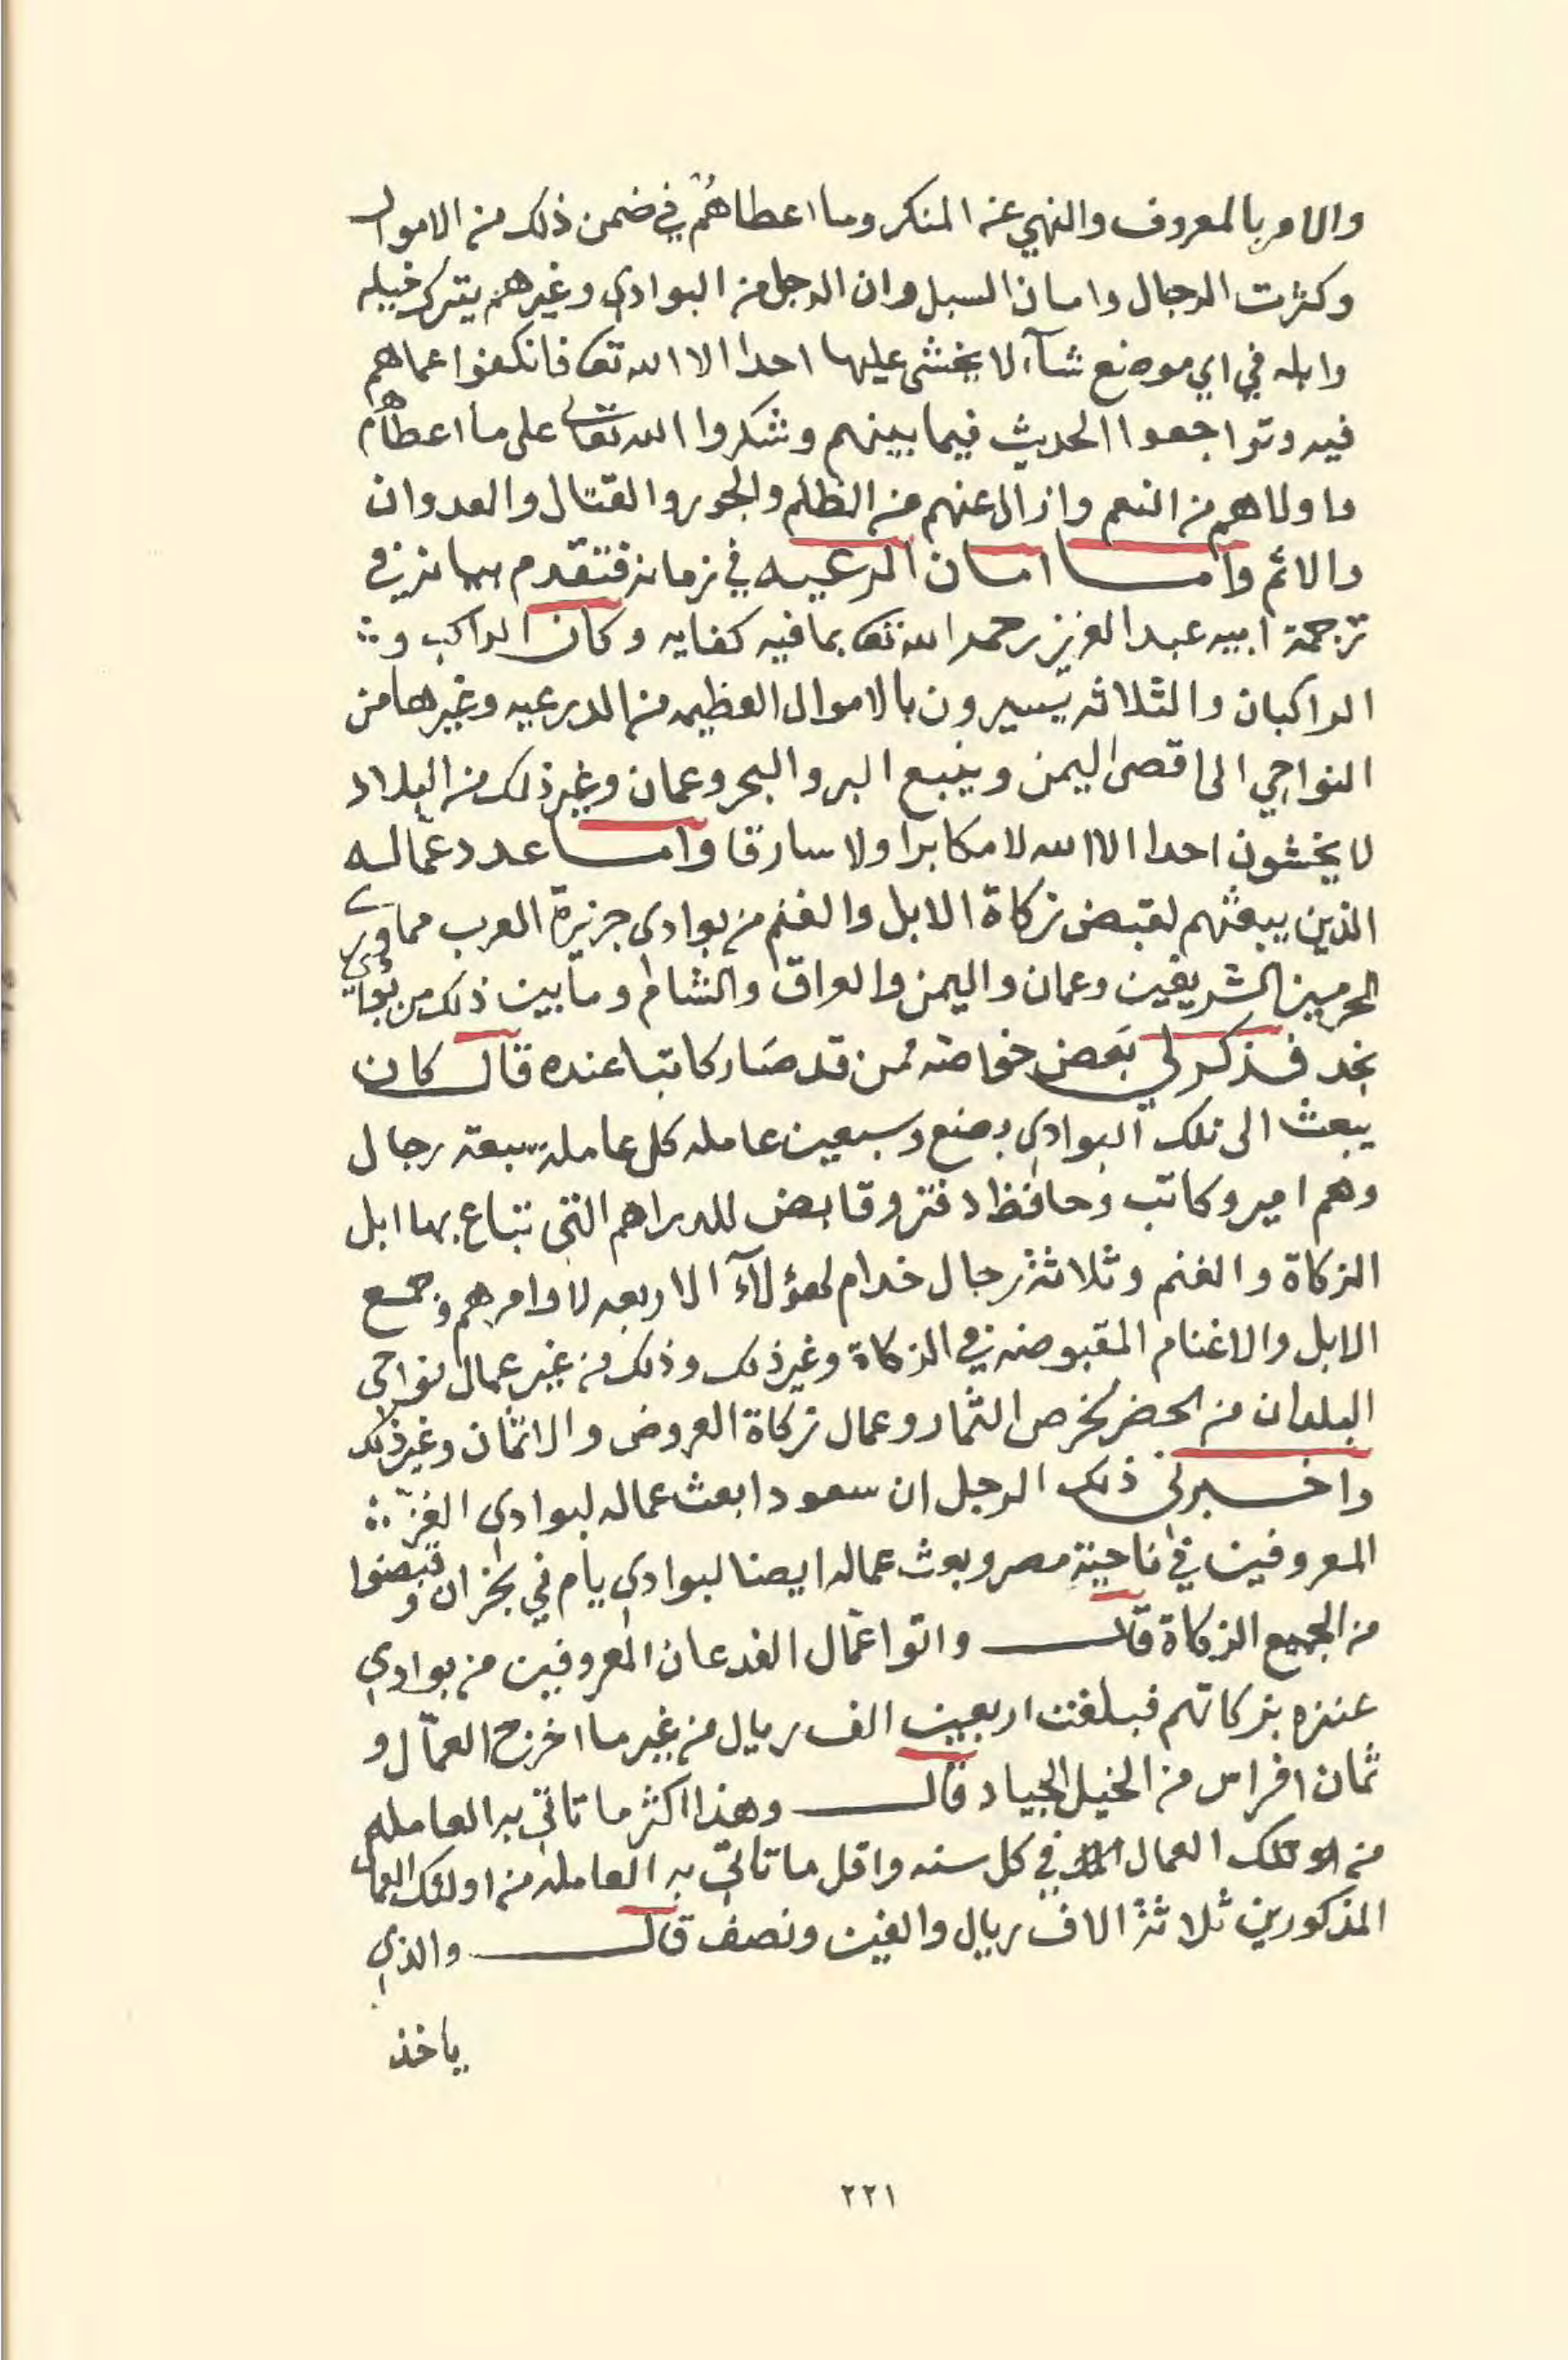 والامر بالمعروف والنهي عن المنكر وما اعطاهم في ضمن ذلك من الاموال
وكثرت الرجال وامان السبل وان الرجل من البوادي وغيرهم يترك خيله
وابله في اي موضع شآء لا يخشى عليها احدا الا الله تعا فانكفوا عماهم
فيه وتراجعوا الحديث فيما بينهم وشكروا الله تعالى على ما اعطاهم
واولاهم من النعم وازال عنهم من الظلم والجور والقتال والعدوان
والاثم واما امان الرعيه في زمانه فتقدم بيانه في
ترجمة ابيه عبد العزيز رحمه الله تعا بما فيه كفايه وكان الراكب و
الراكبان والثلاثه يسيرون بالاموال العظيمه من الدرعيه وغيرها من
النواحي الى اقصى اليمن وينبع البر والبحر وعمان وغير ذلك من البلاد
لا يخشون احدا الا الله لا مكابرا ولا سارقا واما عدد عماله
الذين يبعثهم لقبض زكاة الابل والغنم من بوادي جزيرة العرب مما وري
الحرمين الشريفين وعمان واليمن والعراق والشام وما بين ذلك من بوادي
نجد فذكر لي بعض خواصه ممن قد صار كاتبا عنده قال كان
يبعث الى تلك البوادي بضع وسبعين عامله كل عامله سبعة رجال
وهم امير وكاتب وحافظ دفتر وقابض للدراهم التي تباع بها ابل
الزكاة والغنم وثلاثة رجال خدام لهؤلآء الاربعه لاوامرهم وجمع
الابل والاغنام المقبوضه في الزكاة وغير ذلك وذلك من غير عمال نواحي
البلدان من الحضر لخرص الثمار وعمال زكاة العروض والاثمان وغير ذلك
واخبرني ذلك الرجل ان سعودا بعث عماله لبوادي الغز
المعروفين في ناحية مصر وبعث عماله ايضا لبوادي يام في نجران وقبضوا
من الجميع الزكاة قال واتوا عمال الفدعان المعروفين من بوادي
عنزه بزكاتهم فبلغت اربعين الف ريال من غير ما اخرج العمال و
ثمان افراس من الخيل الجياد قال وهذا اكثر ما تاتي به العامله
من تلك العمال في كل سنه واقل ما تاتي به العامله من اولئك العمال
المذكورين ثلاثة الاف ريال والفين ونصف قال والذي
ياخذ
٢٢١